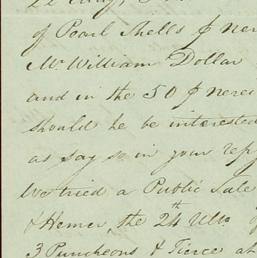 of Pearl Shells
Mr William Dollar
and in the 50
should he be interested
as say so in your rep
We tried a Public Sale
the 24th Ulto
3 Puncheons & Tierce at